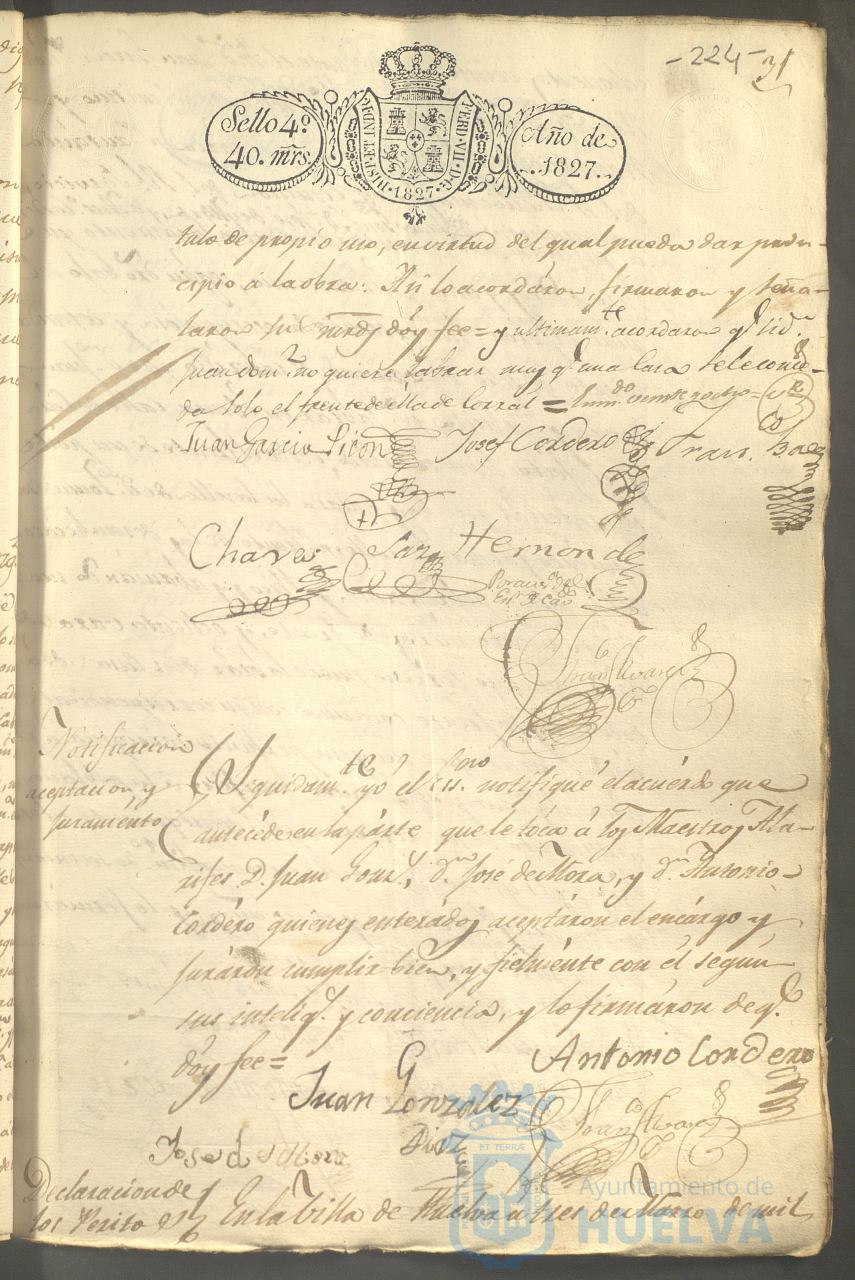 -224- 31
Sello 4º
40. mrs.
HISP. ET IND. R. FERD. VII. D. G. 1827
Año de
1827.
tulo de propio uso, en virtud del qual pueda dar prin-
cipio á la obra. Asi lo acordáron, firmaron y seña-
laron sus mrds doy fee = y ultimamte. acordaron qe. si dn.
Juan Domz. no quiere labrar mas qe. una casa se le conce-
da solo el frente de ella de corral =
Juan Garcia Picon Josef Cordero Fran.
Chaves Saz Hernande
Por aus. del
Esº de Cabdo
Franco Alvarez
Notificacion
aceptacion y
juramento
Seguidamte. yo el Essno. notifiqué el acuérdo que
antecéde en la párte que le toca á los Maestros Ala-
rifes D. Juan Gonz., dn. José de Mora, y dn. Antonio
Cordéro quienes enterádos aceptáron el encárgo y
juráron cumplir bien, y fielménte con él según
sus intelig. y conciencia, y lo firmáron de qe.
dóy fee =
Antonio Cordero
Juan Gonzalez
Diaz
Jose de Mora
Franco Alvarez
Declaracion de
los Peritos
En la Villa de Huelva a tres de Marzo de mil
ET TERRÆ
Ayuntamiento de
HUELVA